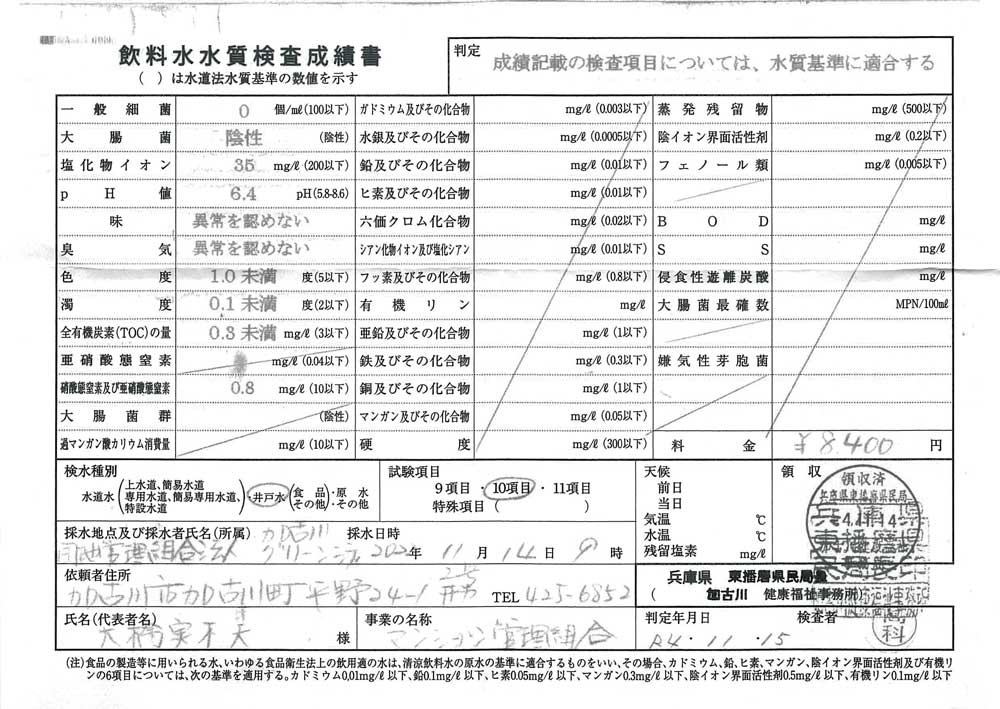 飲料水水質検査成績書
( )は水道法水質基準の数値を示す
判定 成績記載の検査項目については、水質基準に適合する
一般細菌 0 個/mℓ(100以下) カドミウム及びその化合物 mg/ℓ (0.003以下) 蒸発残留物 mg/ℓ (500以下)
大腸菌 陰性 (陰性) 水銀及びその化合物 mg/ℓ (0.0005以下) 陰イオン界面活性剤 mg/ℓ (0.2以下)
塩化物イオン 35 mg/ℓ (200以下) 鉛及びその化合物 mg/ℓ (0.01以下) フェノール類 mg/ℓ (0.005以下)
pH値 6.4 pH(5.8-8.6) ヒ素及びその化合物 mg/ℓ (0.01以下)
味 異常を認めない 六価クロム化合物 mg/ℓ (0.02以下) BOD mg/ℓ
臭気 異常を認めない シアン化物イオン及び塩化シアン mg/ℓ (0.01以下) SS mg/ℓ
色度 1.0未満 度(5以下) フッ素及びその化合物 mg/ℓ (0.8以下) 侵食性遊離炭酸 mg/ℓ
濁度 0.1未満 度(2以下) 有機リン mg/ℓ 大腸菌最確数 MPN/100mℓ
全有機炭素(TOC)の量 0.3未満 mg/ℓ (3以下) 亜鉛及びその化合物 mg/ℓ (1以下)
亜硝酸態窒素 mg/ℓ (0.04以下) 鉄及びその化合物 mg/ℓ (0.3以下) 嫌気性芽胞菌
硝酸態窒素及び亜硝酸態窒素 0.8 mg/ℓ (10以下) 銅及びその化合物 mg/ℓ (1以下)
大腸菌群 (陰性) マンガン及びその化合物 mg/ℓ (0.05以下)
過マンガン酸カリウム消費量 mg/ℓ (10以下) 硬度 mg/ℓ (300以下) 料金 ¥8,400 円
検水種別 試験項目 天候 領収
水道水(上水道、簡易水道 専用水道、簡易専用水道、 特設水道)・井戸水(食品 その他)・原水 ・その他
9項目・10項目・11項目 前日
特殊項目( ) 当日
気温 ℃
水温 ℃
残留塩素 mg/ℓ
領収済
兵庫県東播磨県民局
採水地点及び採水者氏名(所属) 加古川 採水日時
団地管理組合法人 グリーンシティ 2022年11月14日 9時
依頼者住所
加古川市加古川町平野24-1 TEL 425-6852
兵庫県 東播磨県民局長
(加古川 健康福祉事務所)
氏名(代表者名) 様 事業の名称 マンション管理組合 判定年月日 R4・11・15 検査者
(注)食品の製造等に用いられる水、いわゆる食品衛生法上の飲用適の水は、清涼飲料水の原水の基準に適合するものをいい、その場合、カドミウム、鉛、ヒ素、マンガン、陰イオン界面活性剤及び有機リ
ンの6項目については、次の基準を適用する。カドミウム0.01mg/ℓ以下、鉛0.1mg/ℓ以下、ヒ素0.05mg/ℓ以下、マンガン0.3mg/ℓ以下、陰イオン界面活性剤0.5mg/ℓ以下、有機リン0.1mg/ℓ以下